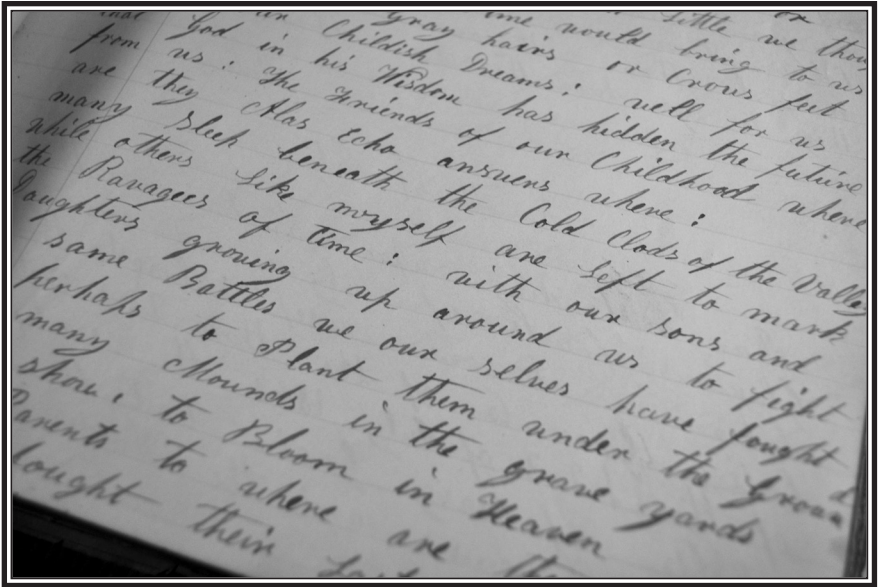 or
little we thou
time would bring to us
gray hairs or Crous feet
Childish Dreams; well for us
that God in his Wisdom has hidden the future
from us: The Friends of our Childhood where
are they Alas Echo answers where:
many Sleep beneath the Cold Clods of the Valley
while others like myself are left to mark
the Ravages of time: with our sons and
Daughters growing up around us to fight
same Battles we our selves have fought
perhaps to Plant them under the Ground
many Mounds in the grave yards
show, to Bloom in Heaven
Parents to where are
their